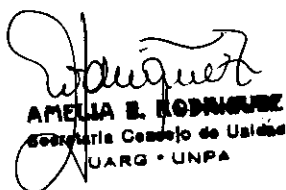 AMELIA E. RODRIGUEZ
Secretaria Consejo de Unidad
UARG * UNPA